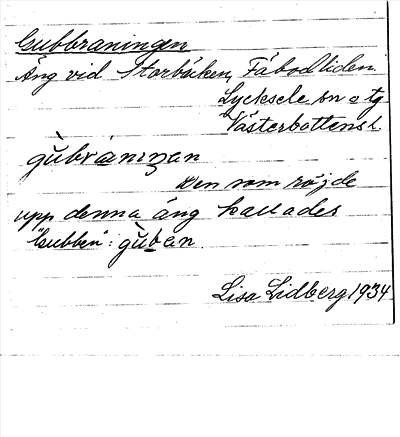 Gubbraningen
Äng vid Storbäcken, Fäbodliden.
Lycksele sn o tg
Västerbottens l.
gu̇brániŋan
Den som röjde
upp denna äng kallades
"Gubben": gu̇ban.
Lisa Lidberg 1934